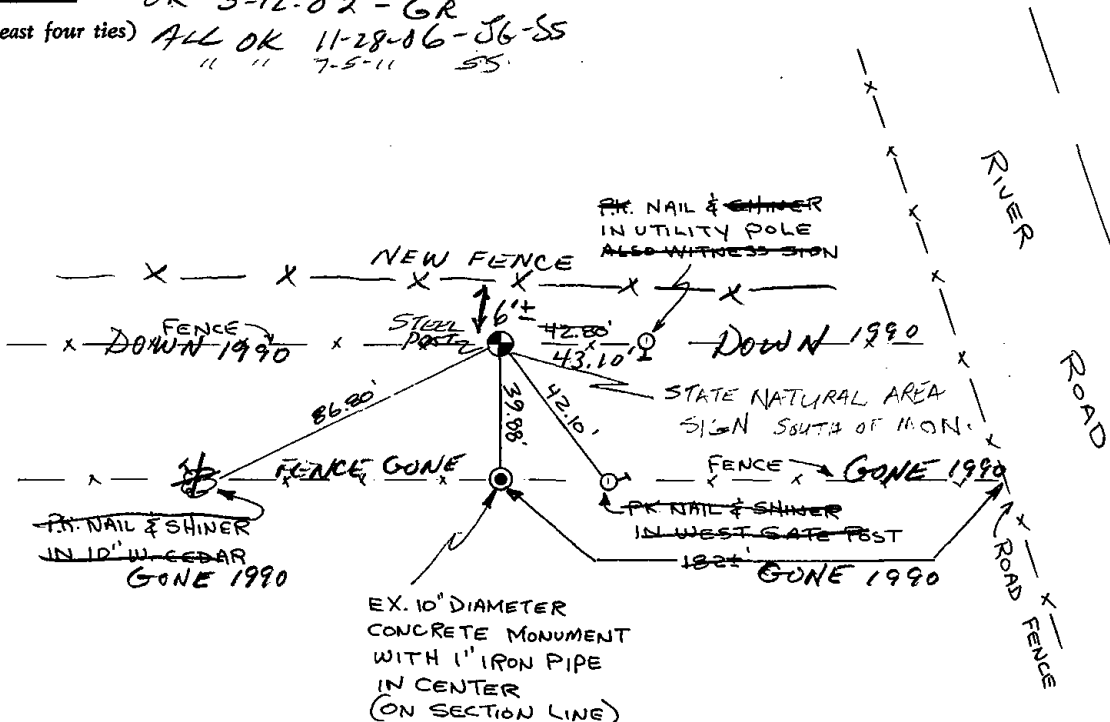 OK 5-12-02 - GR
east four ties) ALL OK 11-28-06-JG-SS
" " 7-5-11 SS.
RIVER
ROAD
P.K. NAIL & SHINER
IN UTILITY POLE
ALSO WITNESS SIGN
NEW FENCE
6'±
FENCE
DOWN 1990
STEEL
POST
42.80'
43.10'
DOWN 1990
STATE NATURAL AREA
SIGN SOUTH OF MON.
86.80'
39.88'
42.10'
FENCE GONE
FENCE
GONE 1990
P.K. NAIL & SHINER
IN 10" W. CEDAR
GONE 1990
PK NAIL & SHINER
IN WEST GATE POST
182±'
GONE 1990
ROAD FENCE
EX. 10" DIAMETER
CONCRETE MONUMENT
WITH 1" IRON PIPE
IN CENTER
(ON SECTION LINE)